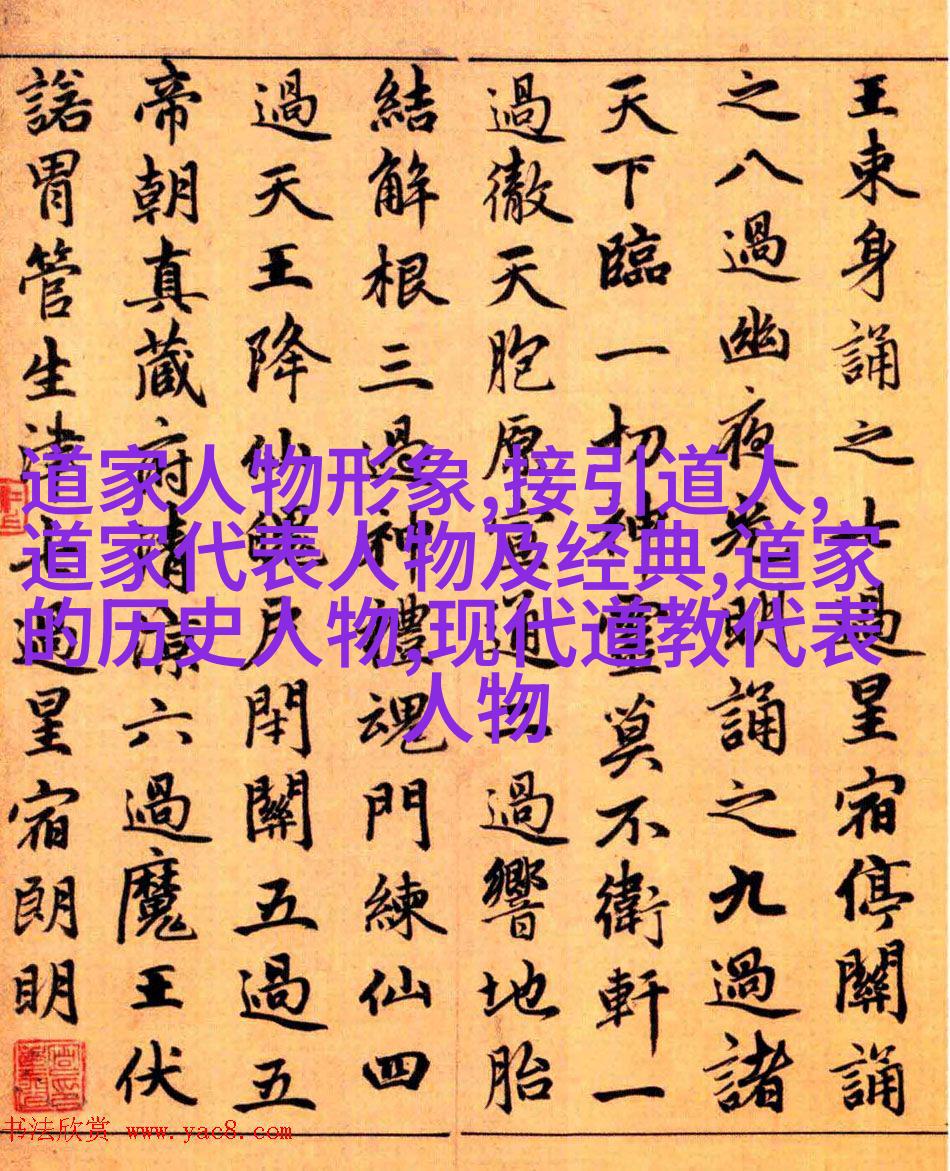 王東身誦之七過星宿停關誦
之八過幽夜光明誦之九過諸
天下臨一切神靈莫不衛軒一
過徹天胞原宣道二過響地胎
結解根三過神禮魂門練仙四
過天王降仙戶閇關五過五
帝朝真藏府清涼六過魔王伏
諾胃管生津七過星宿朗明
道家人物形象,接引道人,
道家代表人物及经典,道家
的历史人物,现代道教代表
人物
书法欣赏 www.yac8.com